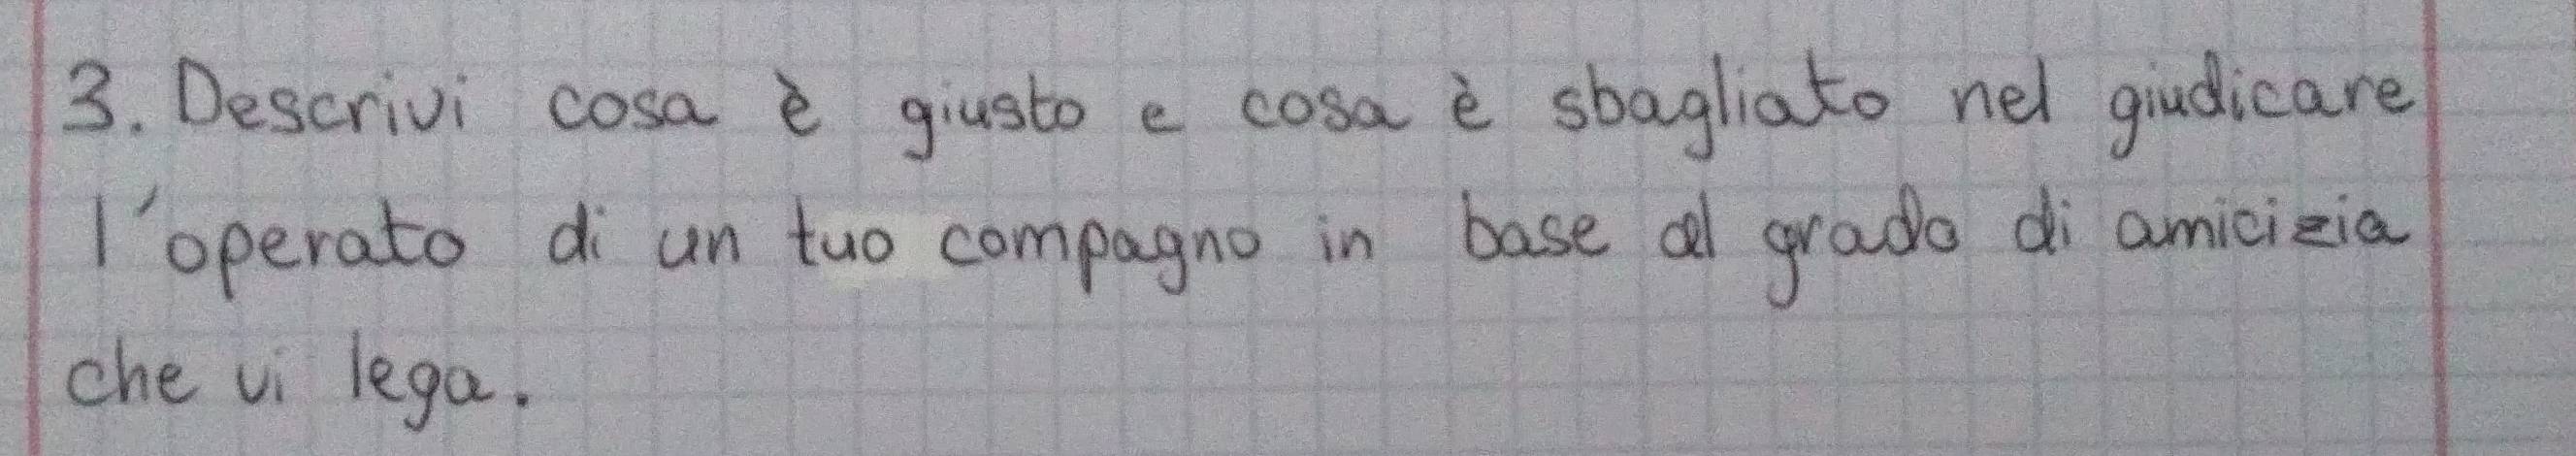 3. Descrivi cosa è giusto e cosa è sbagliato nel giudicare
l'operato di un tuo compagno in base al grado di amicizia
che vi lega.